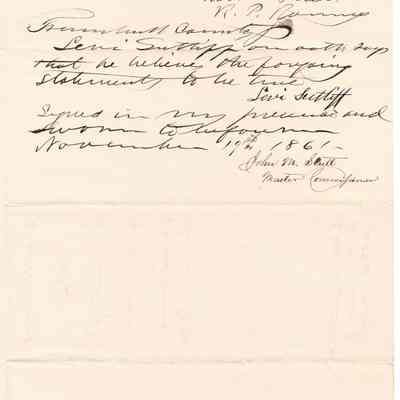 R. P. Ranney
Trumbull County
Levi Sutliff on oath says
that he believes the forgoing
statements to be true
Levi Sutliff
Signed in my presence and
sworn to before me
November 19th 1861-
John M. Stull
Master Commissioner